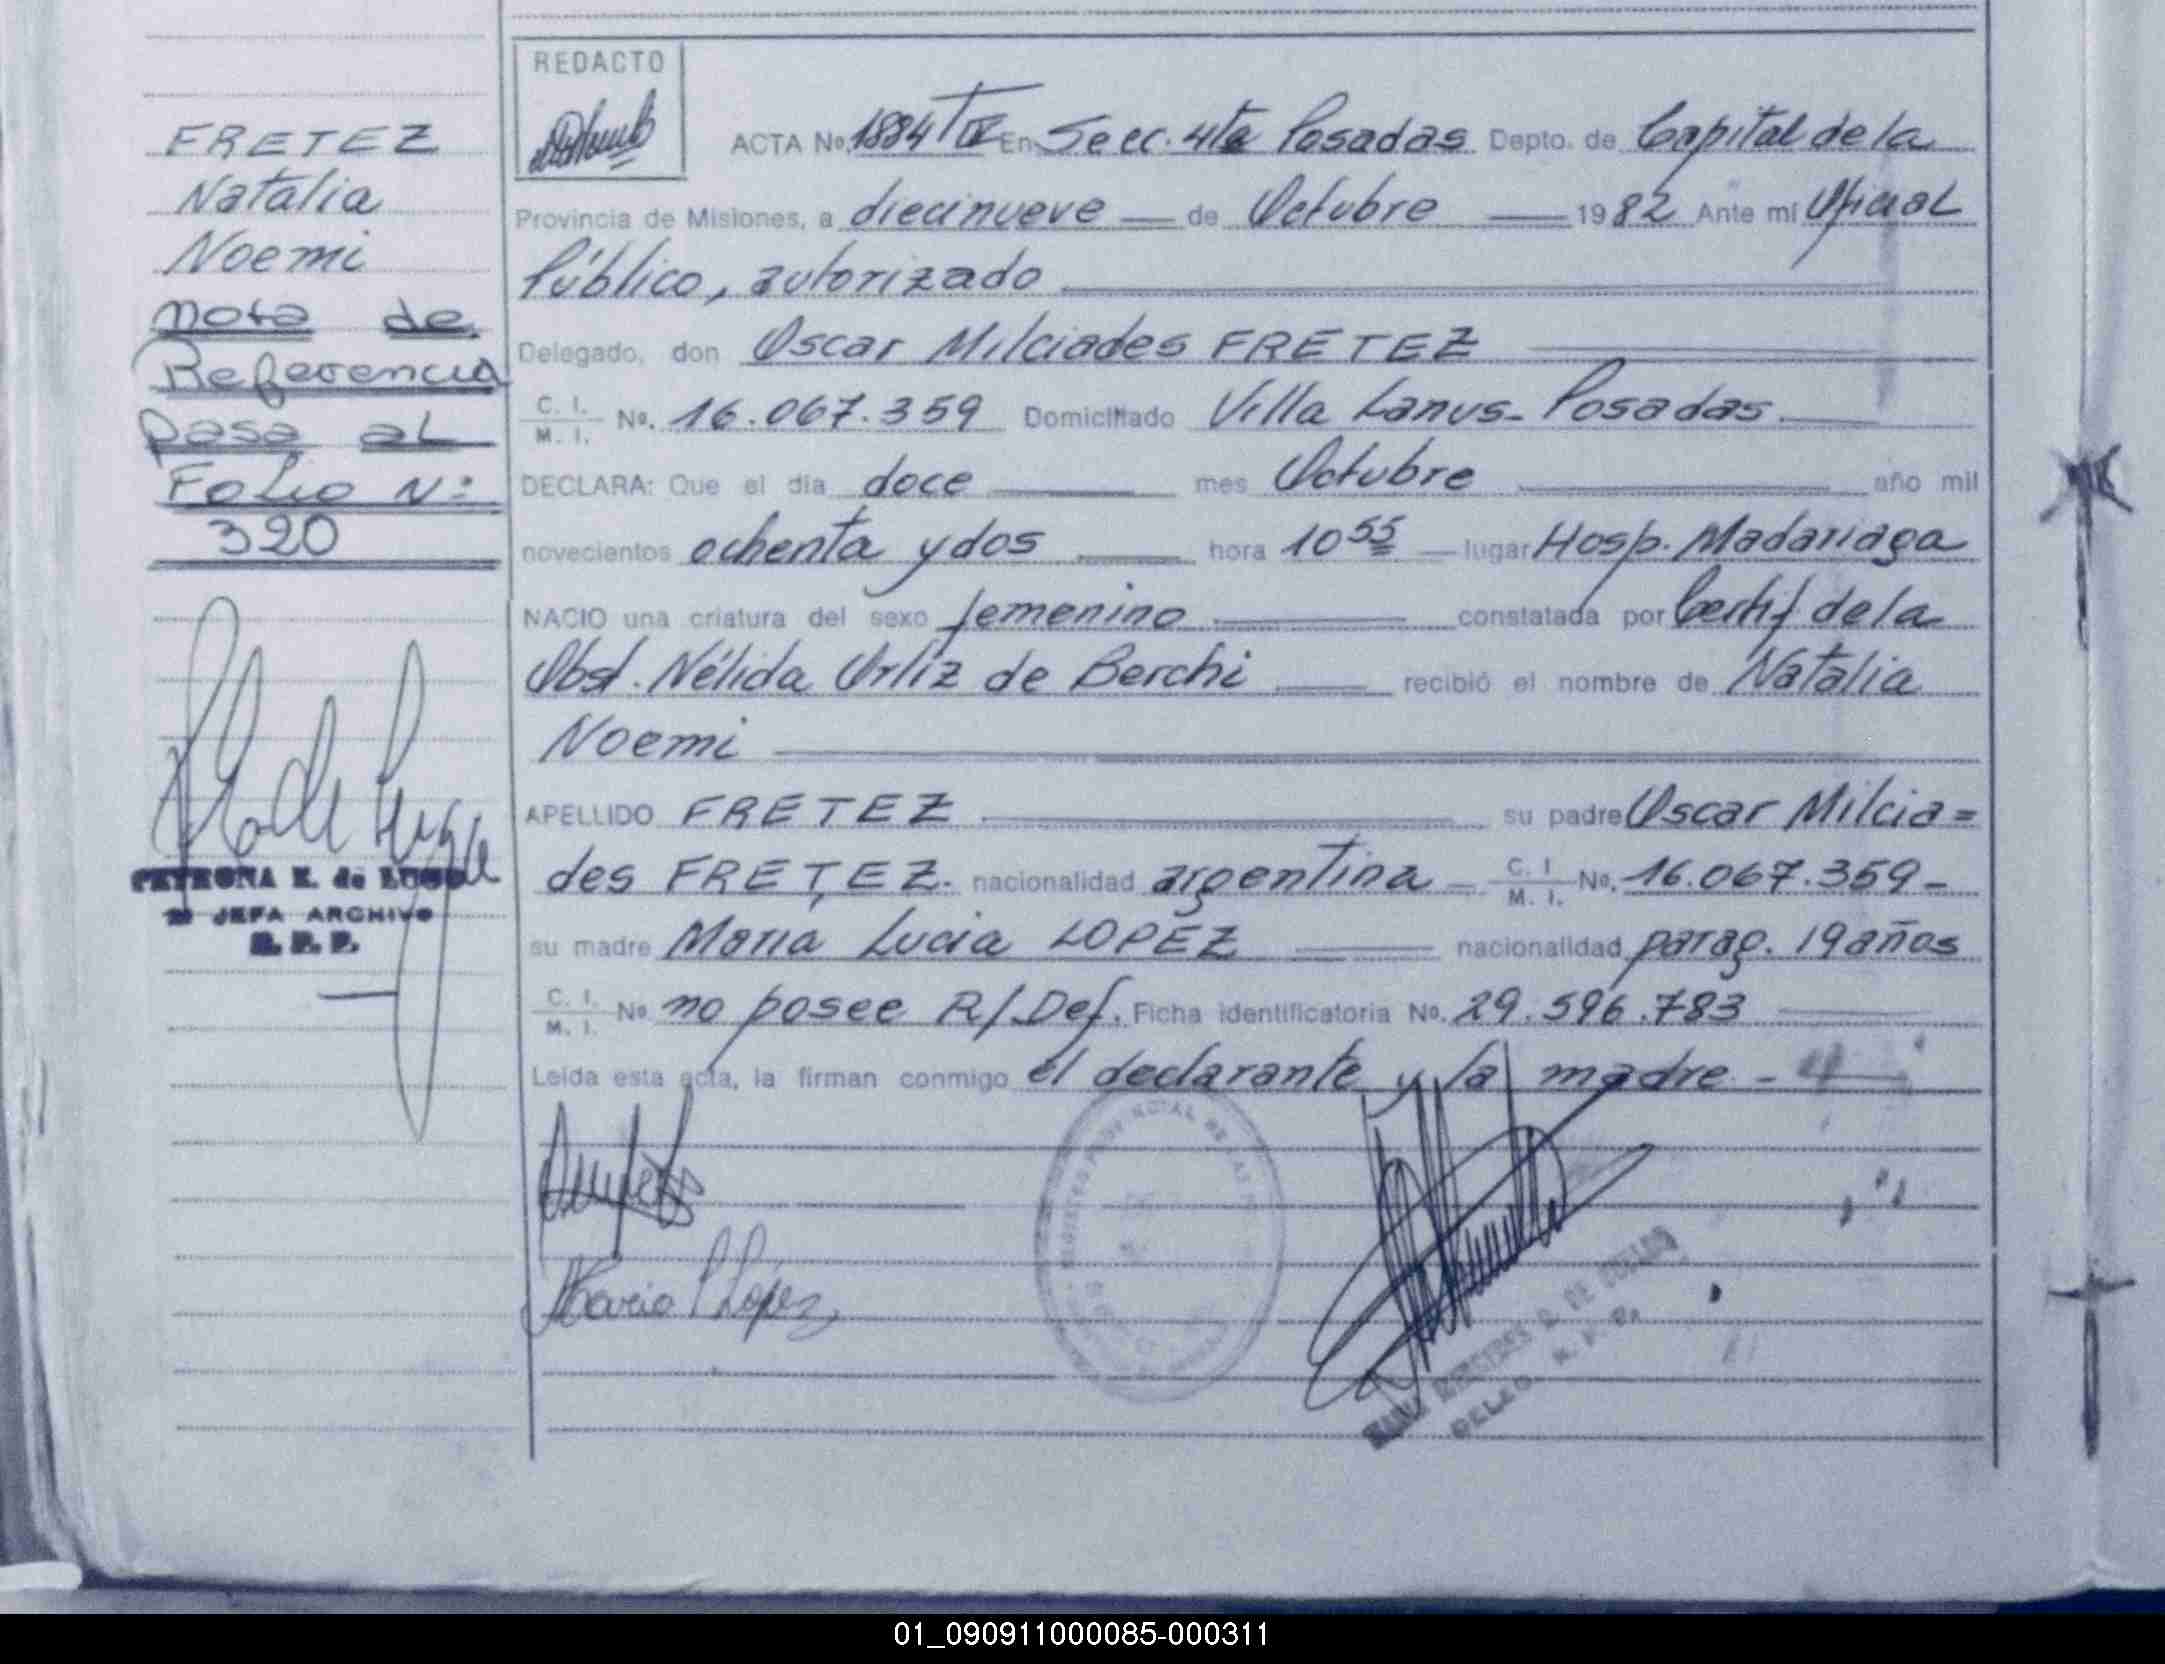 FRETEZ
Natalia
Noemi
Nota de
Referencia
pasa al
Folio Nº
320
PETRONA E. de LUGO
JEFA ARCHIVO
R. P. P.
REDACTO
ACTA No. 1884 T IV En Secc. 4ta Posadas Depto. de Capital de la
Provincia de Misiones, a diecinueve de Octubre 1982 Ante mí Oficial
Público, autorizado
Delegado, don Oscar Milciades FRETEZ
C. I. M. I. No. 16.067.359 Domiciliado Villa Lanus - Posadas
DECLARA: Que el día doce mes Octubre año mil
novecientos ochenta y dos hora 10 55 lugar Hosp. Madariaga
NACIO una criatura del sexo femenino constatada por Certif de la
Obst. Nélida Ortiz de Berchi recibió el nombre de Natalia
Noemi
APELLIDO FRETEZ su padre Oscar Milcia=
des FRETEZ. nacionalidad argentina C. I. M. I. No. 16.067.359-
su madre Maria Lucia LOPEZ nacionalidad parag. 19 años
C. I. M. I. No no posee R/Def. Ficha identificatoria No. 29.596.783
Leída esta acta, la firman conmigo el declarante y la madre -
Maria L López
01_090911000085-000311